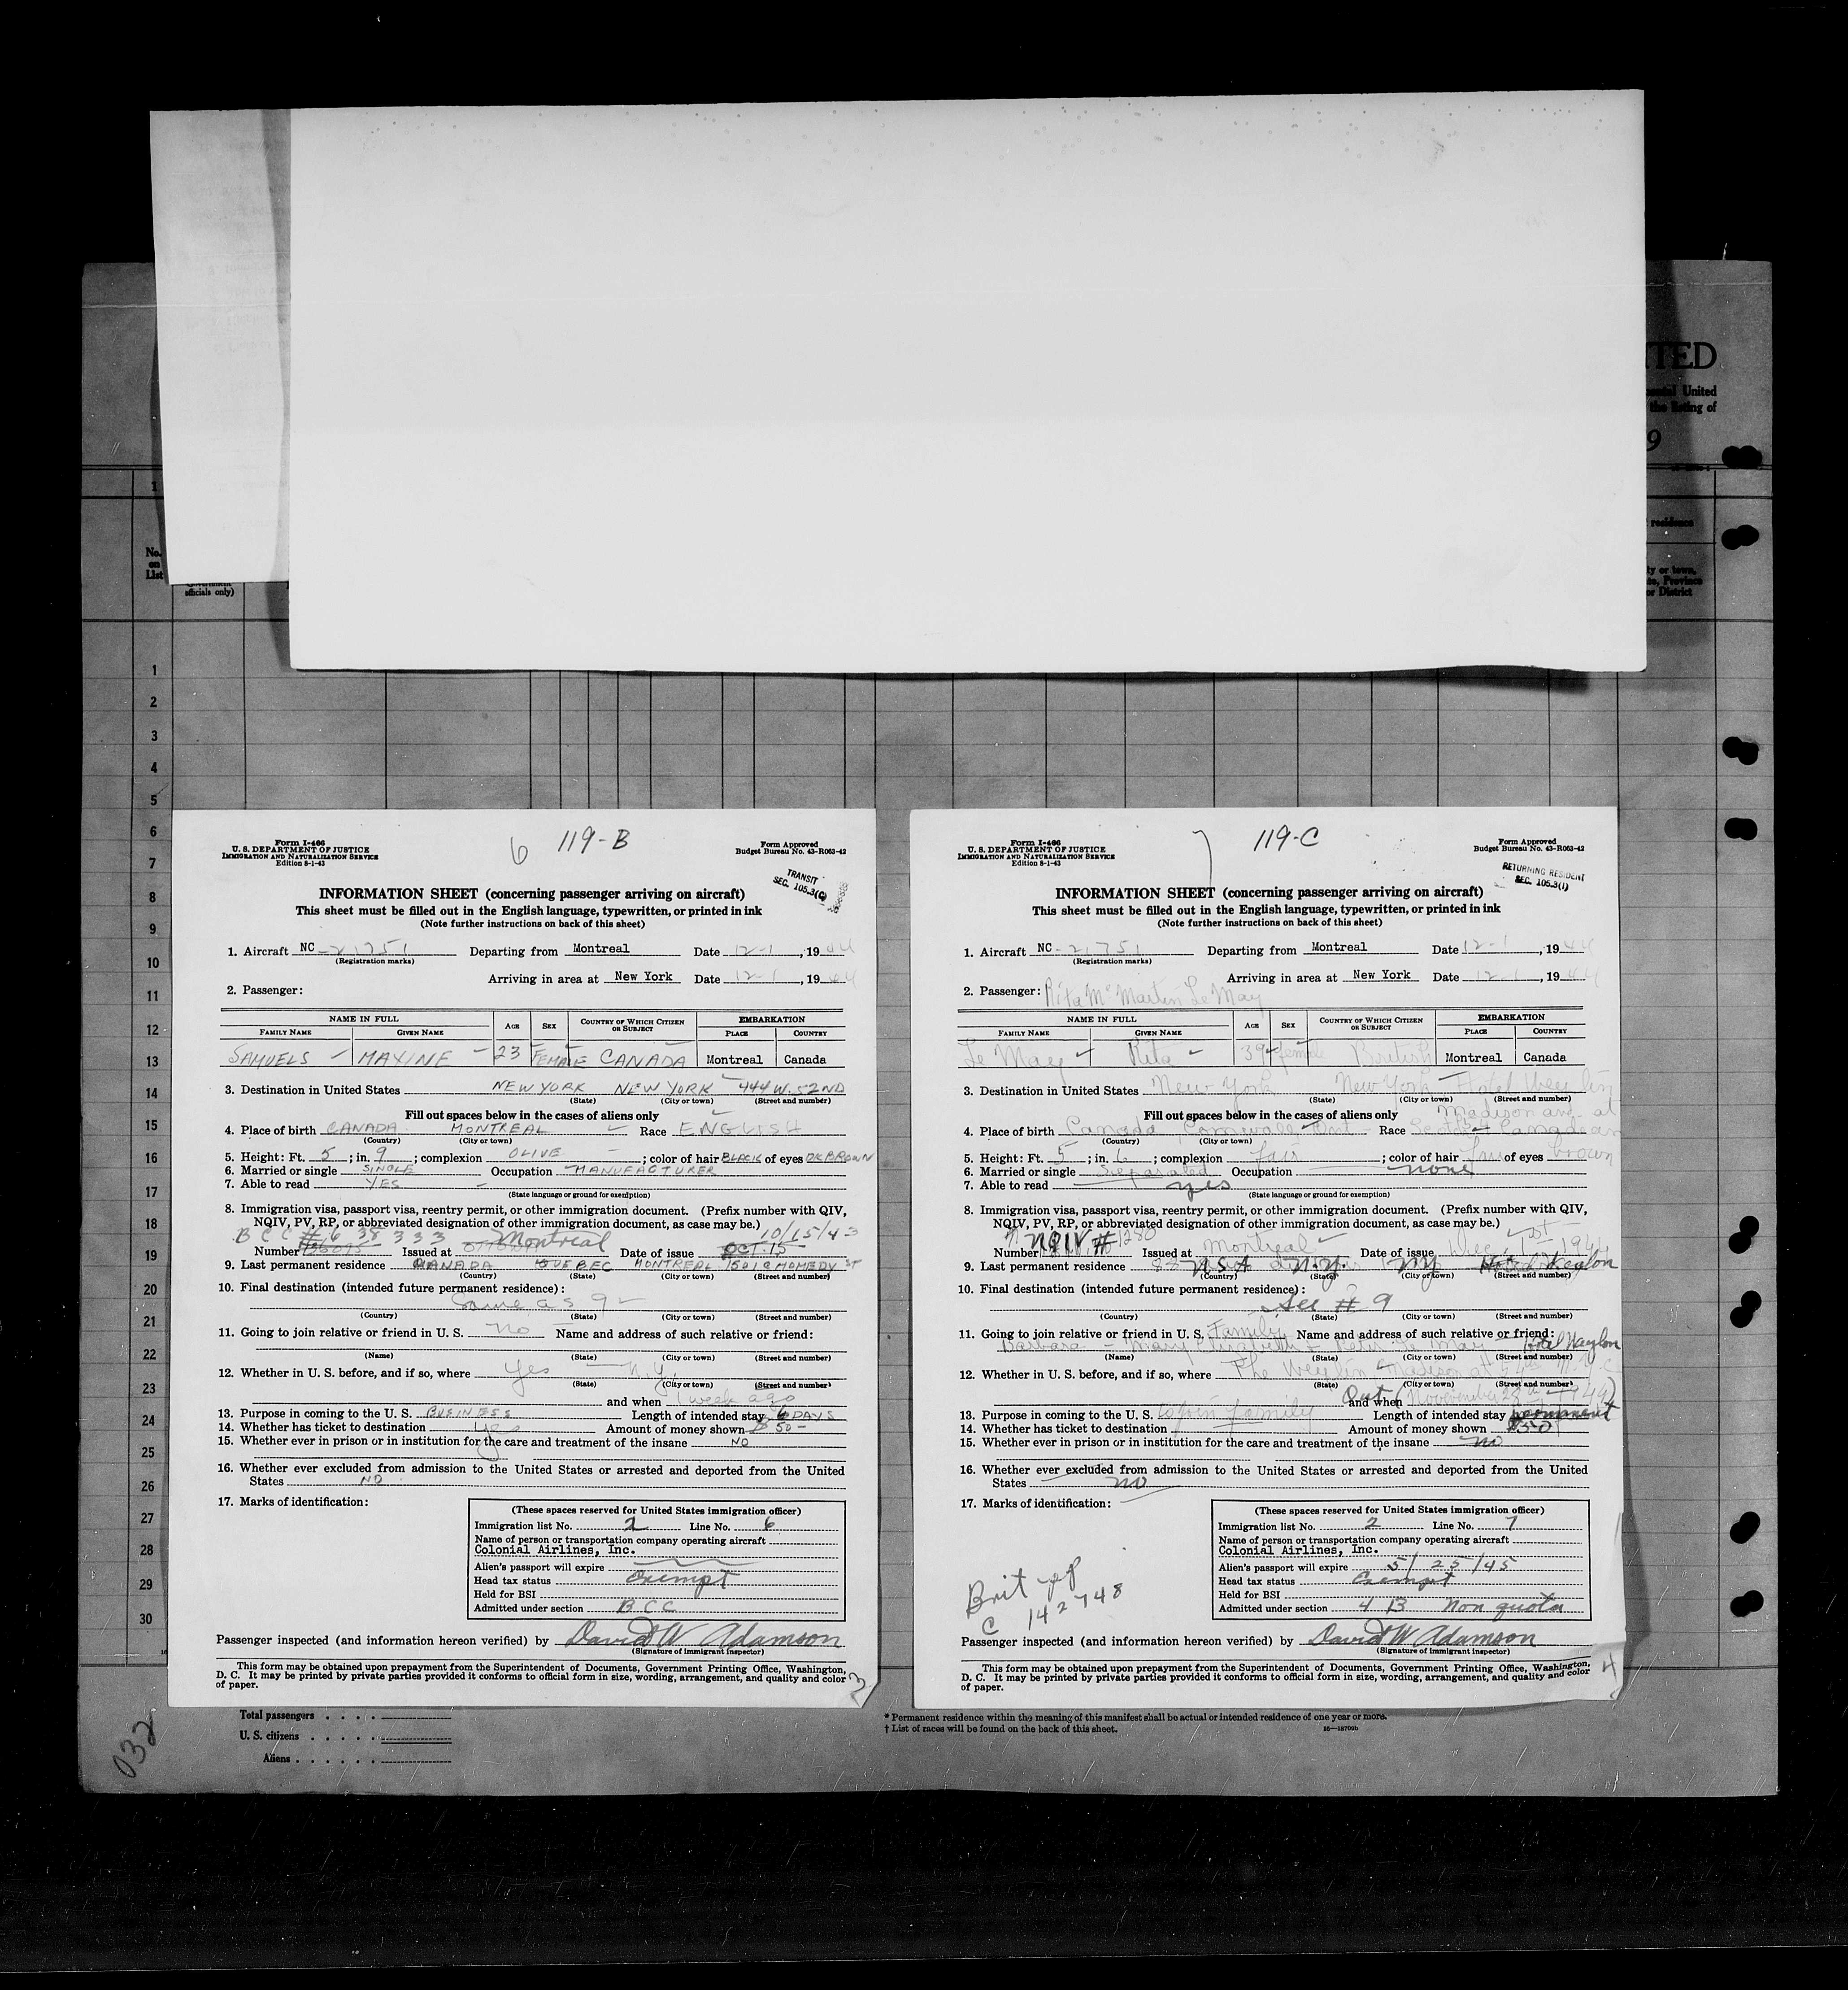 ITED
United
the listing of
9
1
residence
No.
on
List
ty or town,
Province
or District
officials only)
1
2
3
4
5
6
7
8
9
10
11
12
13
14
15
16
17
18
19
20
21
22
23
24
25
26
27
28
29
30
Form I-466
U. S. DEPARTMENT OF JUSTICE
IMMIGRATION AND NATURALIZATION SERVICE
Edition 8-1-43
6 119-B
Form Approved
Budget Bureau No. 43-R063-42
TRANSIT
SEC. 105.3(C)
INFORMATION SHEET (concerning passenger arriving on aircraft)
This sheet must be filled out in the English language, typewritten, or printed in ink
(Note further instructions on back of this sheet)
1. Aircraft NC-21751 Departing from Montreal Date 12-1, 1944
(Registration marks)
Arriving in area at New York Date 12-1, 1944
2. Passenger:
NAME IN FULL AGE SEX COUNTRY OF WHICH CITIZEN OR SUBJECT EMBARKATION
FAMILY NAME GIVEN NAME PLACE COUNTRY
SAMUELS MAXINE 23 FEMALE CANADA Montreal Canada
3. Destination in United States NEW YORK NEW YORK 444 W. 52ND
(State) (City or town) (Street and number)
Fill out spaces below in the cases of aliens only
4. Place of birth CANADA MONTREAL Race ENGLISH
(Country) (City or town)
5. Height: Ft. 5; in. 9; complexion OLIVE; color of hair BLACK of eyes DK BROWN
6. Married or single SINGLE Occupation MANUFACTURER
7. Able to read YES
(State language or ground for exemption)
8. Immigration visa, passport visa, reentry permit, or other immigration document. (Prefix number with QIV,
NQIV, PV, RP, or abbreviated designation of other immigration document, as case may be.)
BCC # 6 38 333 Montreal 10/15/43
Number Issued at Date of issue OCT. 15
9. Last permanent residence CANADA QUEBEC MONTREAL ST
(Country) (State) (City or town) (Street and number)
10. Final destination (intended future permanent residence):
Same as 9
(Country) (State) (City or town) (Street and number)
11. Going to join relative or friend in U. S. No Name and address of such relative or friend:
(Name) (State) (City or town) (Street and number)
12. Whether in U. S. before, and if so, where Yes N.Y.
(State) (City or town) (Street and number)
and when 1 week ago
13. Purpose in coming to the U. S. BUSINESS Length of intended stay 6 DAYS
14. Whether has ticket to destination Yes Amount of money shown $50-
15. Whether ever in prison or in institution for the care and treatment of the insane NO
16. Whether ever excluded from admission to the United States or arrested and deported from the United
States NO
17. Marks of identification:
(These spaces reserved for United States immigration officer)
Immigration list No. 2 Line No. 6
Name of person or transportation company operating aircraft
Colonial Airlines, Inc.
Alien's passport will expire
Head tax status Exempt
Held for BSI
Admitted under section BCC
Passenger inspected (and information hereon verified) by David W Adamson
(Signature of immigrant inspector)
This form may be obtained upon prepayment from the Superintendent of Documents, Government Printing Office, Washington,
D. C. It may be printed by private parties provided it conforms to official form in size, wording, arrangement, and quality and color
of paper.
3
Form I-466
U. S. DEPARTMENT OF JUSTICE
IMMIGRATION AND NATURALIZATION SERVICE
Edition 8-1-43
7 119-C
Form Approved
Budget Bureau No. 43-R063-42
RETURNING RESIDENT
SEC. 105.3(1)
INFORMATION SHEET (concerning passenger arriving on aircraft)
This sheet must be filled out in the English language, typewritten, or printed in ink
(Note further instructions on back of this sheet)
1. Aircraft NC-21751 Departing from Montreal Date 12-1, 1944
(Registration marks)
Arriving in area at New York Date 12-1, 1944
2. Passenger: Rita Mc Martin Le May
NAME IN FULL AGE SEX COUNTRY OF WHICH CITIZEN OR SUBJECT EMBARKATION
FAMILY NAME GIVEN NAME PLACE COUNTRY
Le May Rita 39 female British Montreal Canada
3. Destination in United States New York New York Hotel Weylin
(State) (City or town) (Street and number)
Madison ave. at
Fill out spaces below in the cases of aliens only
4. Place of birth Canada, Cornwall Ont - Race Canadian
(Country) (City or town)
5. Height: Ft. 5; in. 6; complexion Fair; color of hair of eyes brown
6. Married or single Separated Occupation none
7. Able to read yes
(State language or ground for exemption)
8. Immigration visa, passport visa, reentry permit, or other immigration document. (Prefix number with QIV,
NQIV, PV, RP, or abbreviated designation of other immigration document, as case may be.)
Number NQIV # 1280 Issued at Montreal Date of issue 1st
9. Last permanent residence U S A N.Y. NY Hotel Weylon
(Country) (State) (City or town) (Street and number)
10. Final destination (intended future permanent residence):
See # 9
(Country) (State) (City or town) (Street and number)
11. Going to join relative or friend in U. S. Family Name and address of such relative or friend:
Barbara - Mary Elizabeth + Peter Le May Hotel Waylon
(Name) (State) (City or town) (Street and number)
12. Whether in U. S. before, and if so, where The Weylin Madison at
(State) (City or town) (Street and number)
and when Out (November 28th 1944)
13. Purpose in coming to the U. S. to join family Length of intended stay permanent
14. Whether has ticket to destination Amount of money shown $50
15. Whether ever in prison or in institution for the care and treatment of the insane no
16. Whether ever excluded from admission to the United States or arrested and deported from the United
States no
17. Marks of identification:
Brit pp
C 142748
(These spaces reserved for United States immigration officer)
Immigration list No. 2 Line No. 7
Name of person or transportation company operating aircraft
Colonial Airlines, Inc.
Alien's passport will expire 5/25/45
Head tax status Exempt
Held for BSI
Admitted under section 4 B Non quota
Passenger inspected (and information hereon verified) by David W Adamson
(Signature of immigrant inspector)
This form may be obtained upon prepayment from the Superintendent of Documents, Government Printing Office, Washington,
D. C. It may be printed by private parties provided it conforms to official form in size, wording, arrangement, and quality and color
of paper.
4
Total passengers
U. S. citizens
Aliens
* Permanent residence within the meaning of this manifest shall be actual or intended residence of one year or more.
† List of races will be found on the back of this sheet.
16-18709b
032